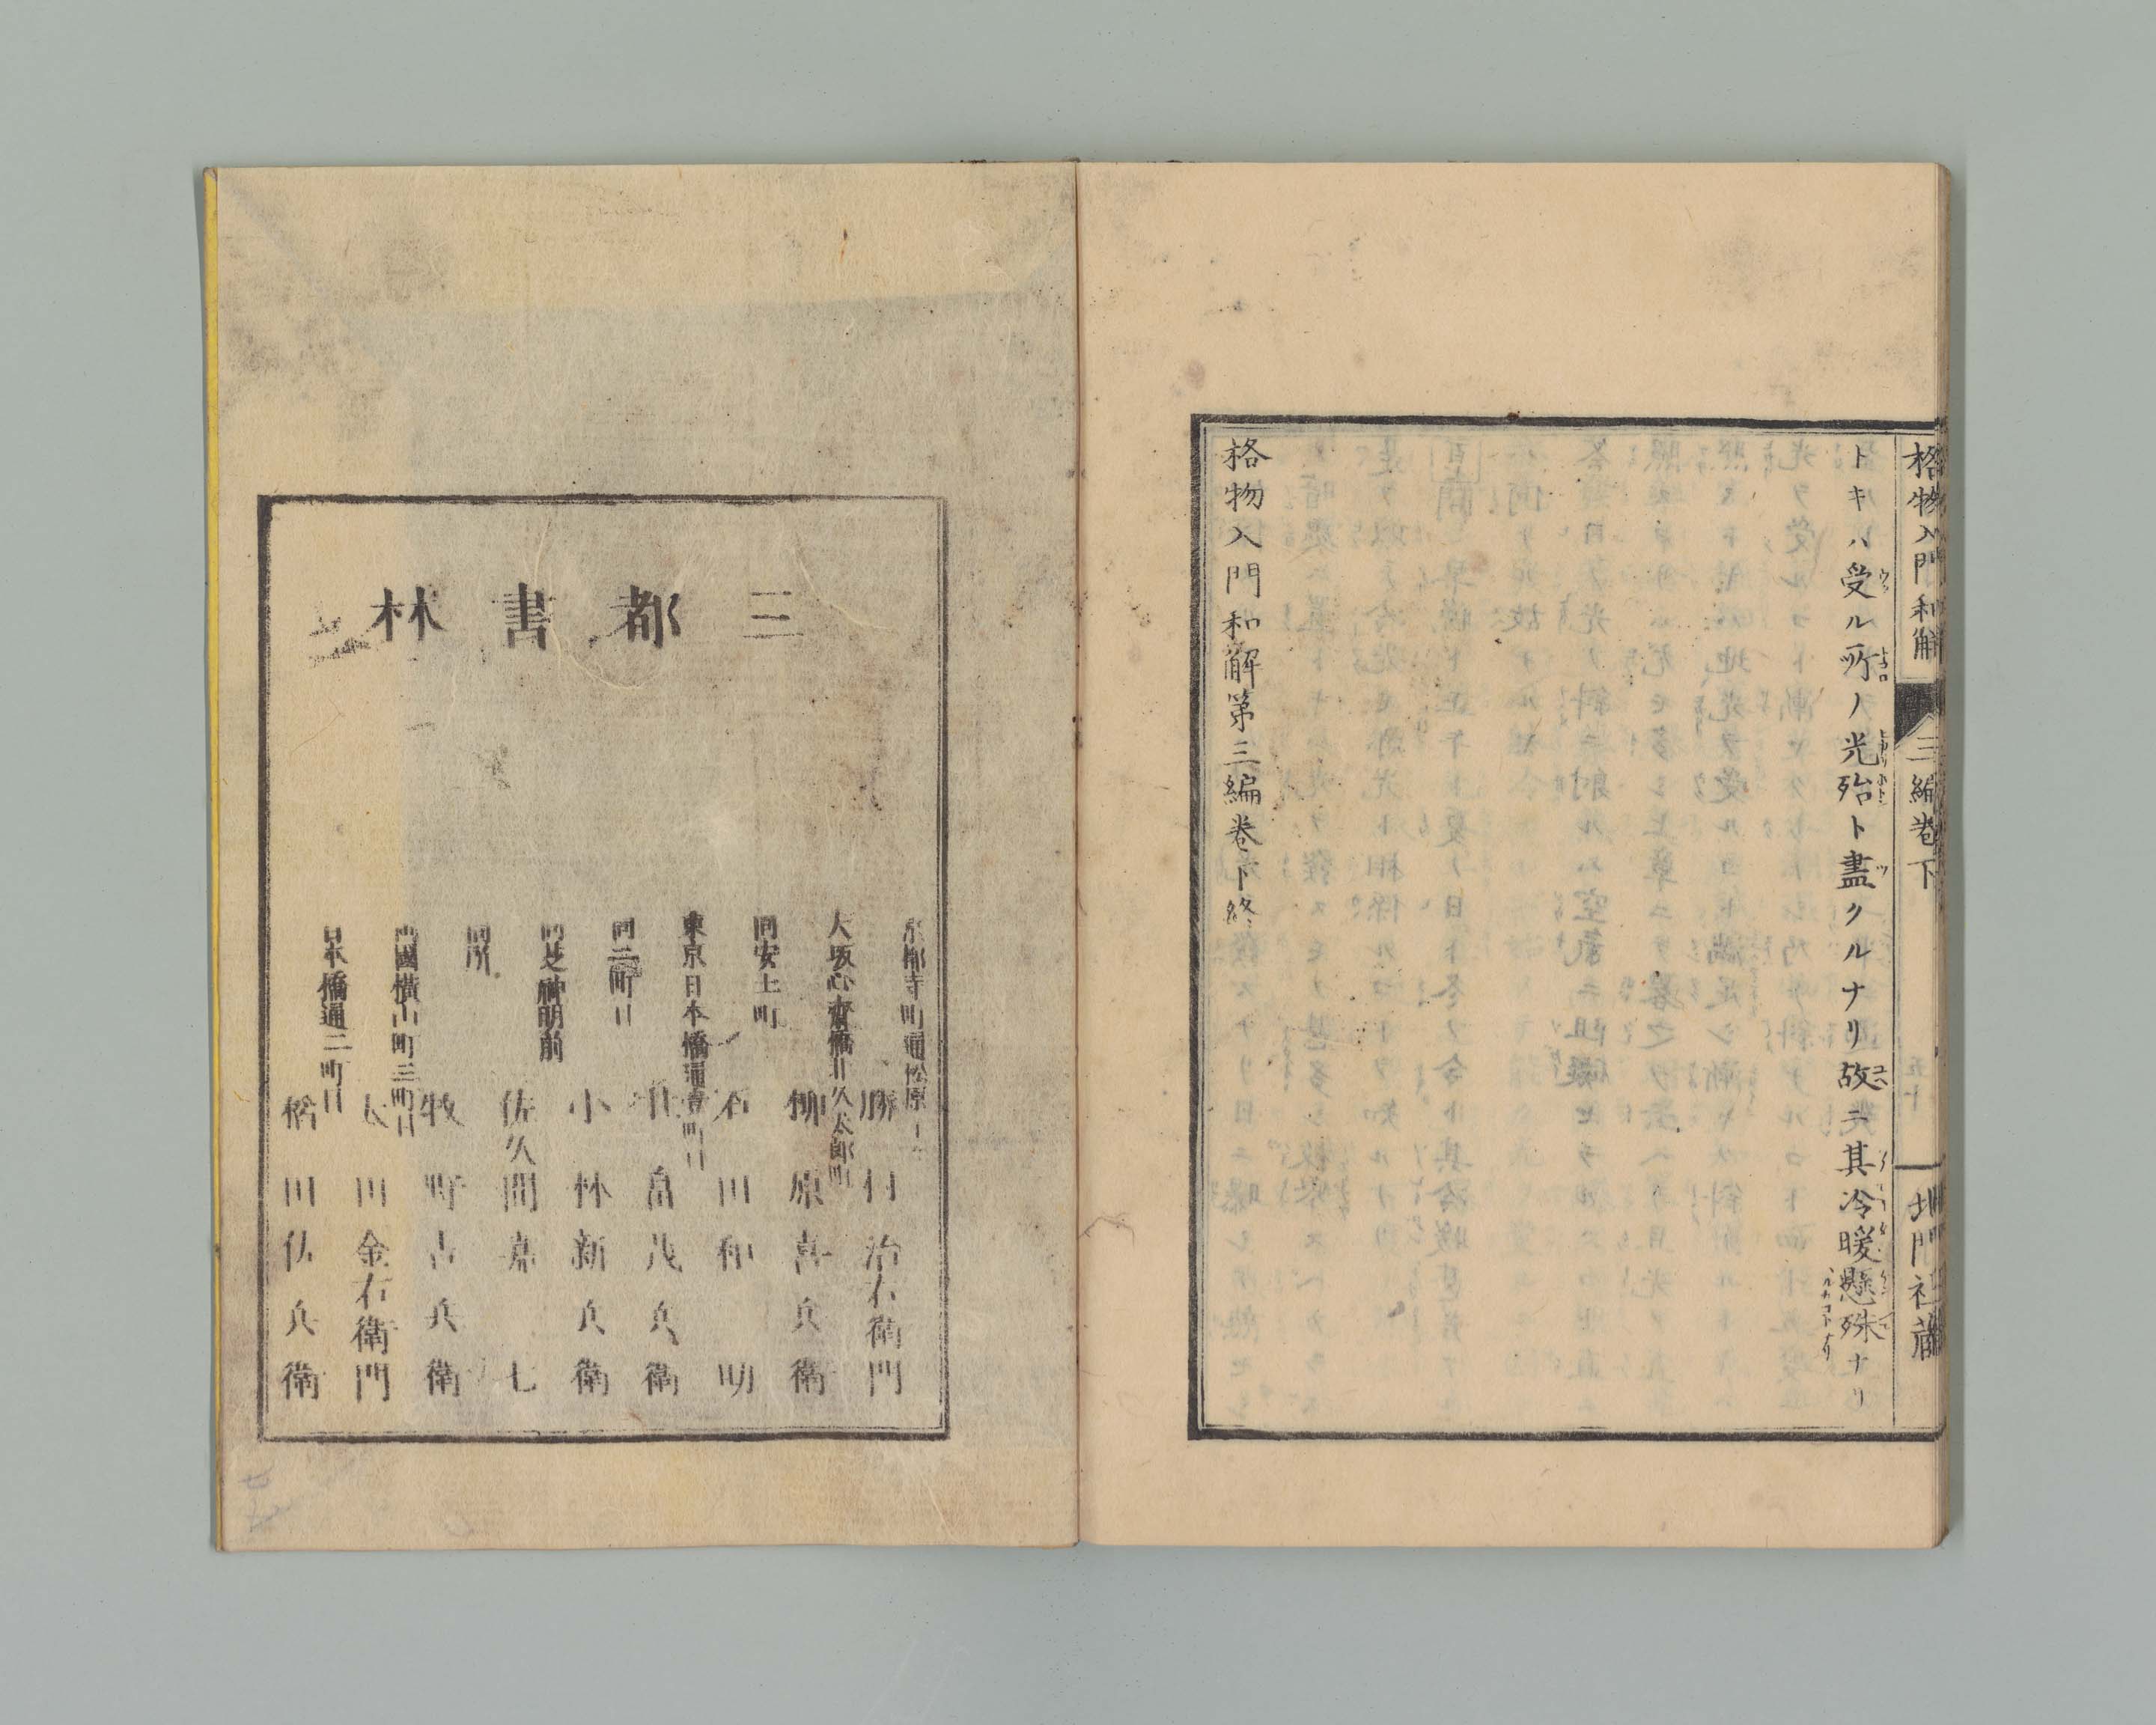 格物入門和解
三編巻下
北門社蔵
トキハ受ル所ノ光殆ト盡クルナリ故ニ其冷暖懸殊ナリ
格物入門和解第三編巻下終
三都書林
京都寺町通松原
勝村治右衛門
大坂心齋橋北久太郎町
柳原喜兵衛
同安土町
石田和助
東京日本橋通壹町目
北畠茂兵衛
同二町目
小林新兵衛
同芝神明前
佐久間嘉七
同所
牧野吉兵衛
両國横山町三町目
金右衛門
日本橋通二町目
稲田佐兵衛